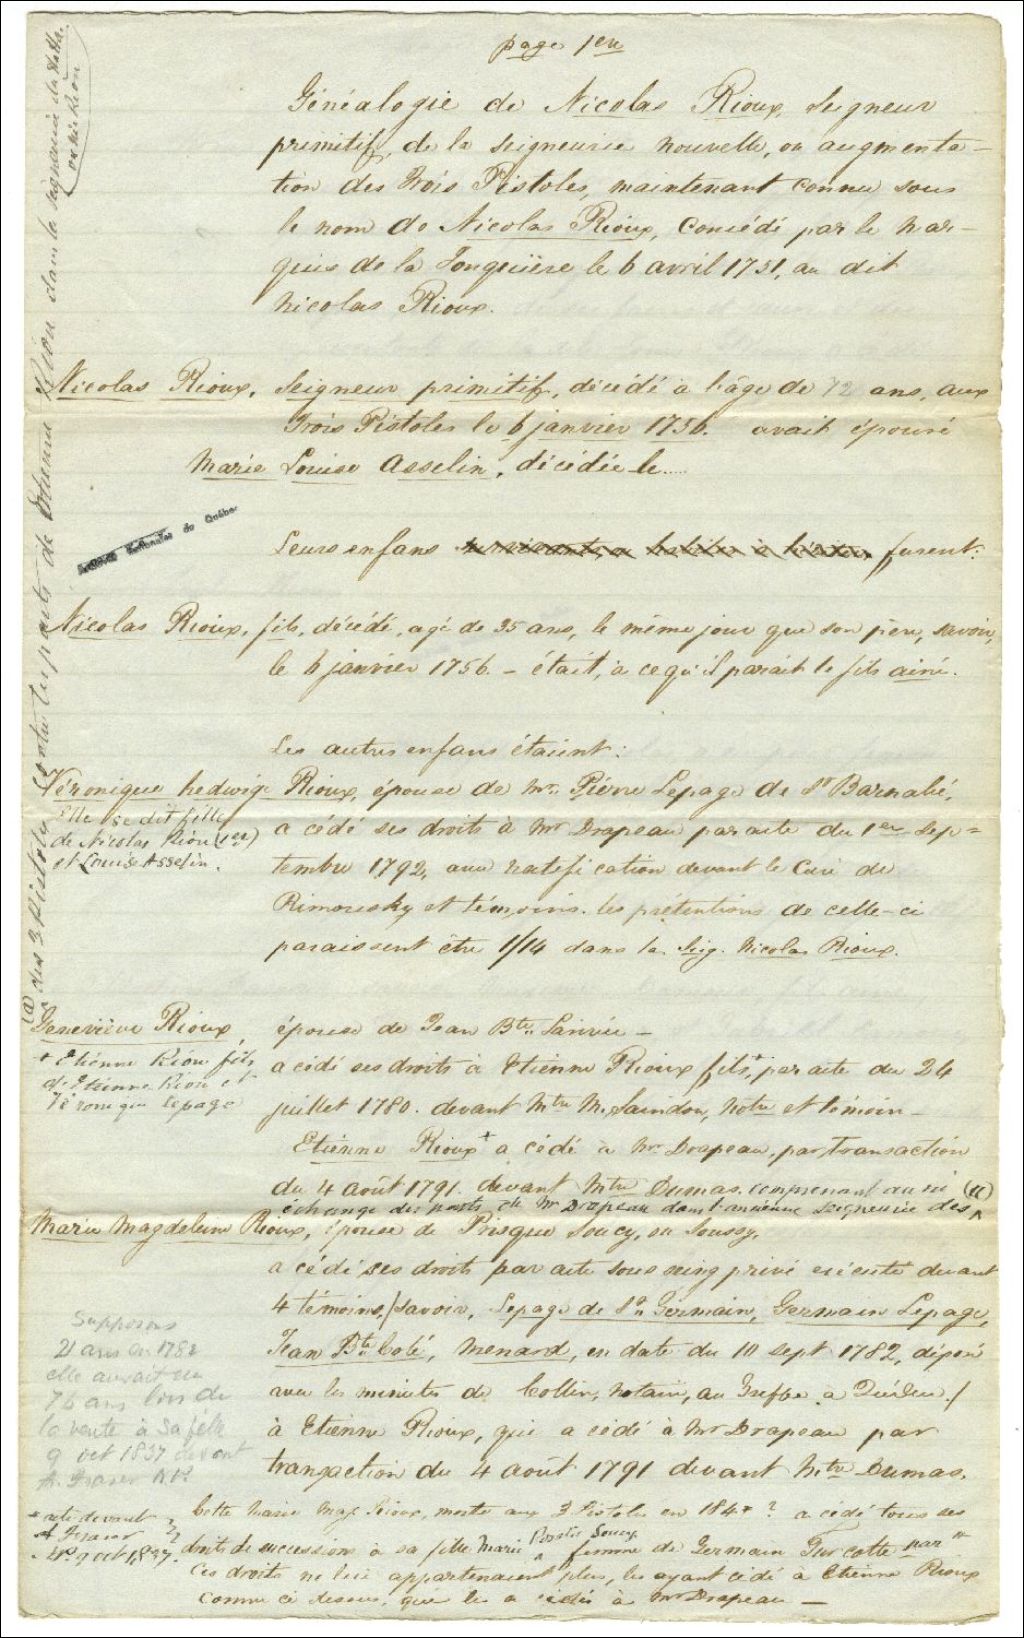 page 1ere
Généalogie de Nicolas Rioux, Seigneur
primitif, de la seigneurie nouvelle, ou augmenta-
tion des Trois Pistoles, maintenant connu sous
le nom de Nicolas Rioux, Concédé par le Mar-
quis de la Jonquière le 6 avril 1751, au dit
Nicolas Rioux.
Nicolas Rioux, Seigneur primitif, décédé à l'âge de 72 ans, aux
Trois Pistoles le 6 janvier 1756. avait épousé
Marie Louise Asselin, décédée le....
Archives Nationales du Québec
Leurs enfans furent:
Nicolas Rioux, fils, décédé, agé de 35 ans, le même jour que son père, savoir,
le 6 janvier 1756. - était, à ce qu'il parait le fils ainé.
Les autres enfans étaient:
Véronique hedwige Rioux, épouse de Mr. Pierre Lepage de St Barnabé,
Elle se dit fille
de Nicolas Riou (1er)
et Louise Asselin.
a cédé ses droits à Mr Drapeau par acte du 1er Sep=
tembre 1792, avec ratification devant le Curé de
Rimousky et témoins. les prétentions de celle-ci
paraissent être 1/14 dans la Seig. Nicolas Rioux.
Geneviève Rioux, épouse de Jean Bte. Sarivée -
+ Etienne Riou fils
de Etienne Riou et
Véronique Lepage
a cédé ses droits à Etienne Rioux fils,+ par acte du 24
juillet 1780. devant Mtre M. Saindon, Notre et témoin -
Etienne Rioux + a cédé à Mr Drapeau, par transaction
du 4 août 1791. devant Mtre Dumas. comprenant aussi (a)
échange des parts de Mr Drapeau dans l'ancienne seigneurie des
(a) des 3 Pistoles contre les parts de Etienne Riou dans la seigneurie du dit
Nic. Riou
Marie Magdeleine Rioux, épouse de Prisque Soucy, ou Soussy,
a cédé ses droits par acte sous seing privé exécuté devant
4 témoins, (savoir, Lepage de St. Germain, Germain Lepage,
Jean Bte. Coté, Menard, en date du 10 sept 1782, déposé
avec les minutes de Collin, notaire, au Greffe à Québec.)
à Etienne Rioux, qui a cédé à Mr Drapeau par
transaction du 4 août 1791 devant Mtre Dumas.
Supposons
21 ans en 1782
elle aurait eu
76 ans lors de
la vente à sa fille
9 oct 1837 devant
A. Fraser N.P.
Cette Marie Mag. Rioux, morte aux 3 Pistoles en 184+ ? a cédé tous ses
droits de successions à sa fille Marie Rosalie Soucy femme de Germain Turcotte par *
* acte devant
A Fraser
N.P. 9 oct 1,837.
Ces droits ne lui appartenaient plus, les ayant cédé à Etienne Rioux
comme ci dessus, qui les a cédés à Mr Drapeau —